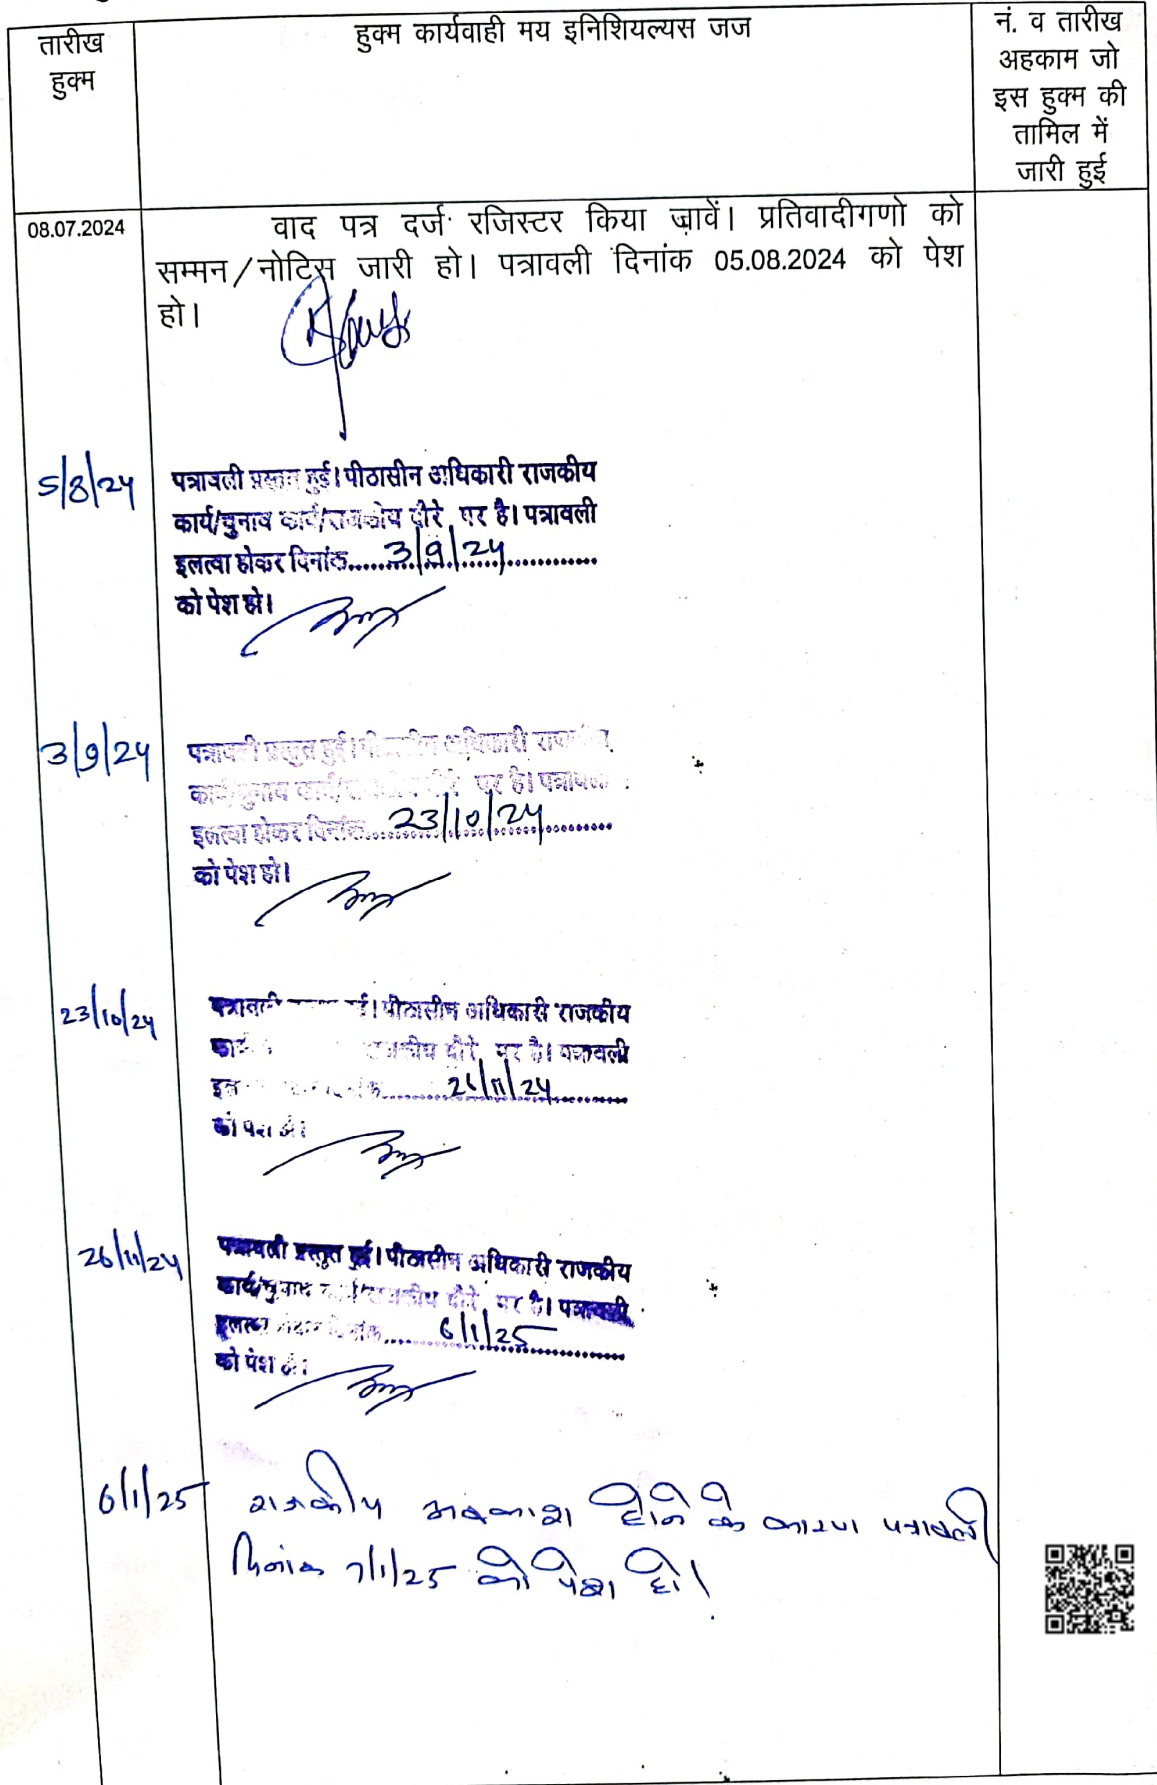 तारीख
हुक्म
हुक्म कार्यवाही मय इनिशियल्यस जज
नं. व तारीख
अहकाम जो
इस हुक्म की
तामिल में
जारी हुई
08.07.2024
वाद पत्र दर्ज रजिस्टर किया जावें। प्रतिवादीगणो को
सम्मन/नोटिस जारी हो। पत्रावली दिनांक 05.08.2024 को पेश
हो।
5/8/24
पत्रावली प्रस्तुत हुई। पीठासीन अधिकारी राजकीय
कार्य/चुनाव कार्य/राजकीय दौरे पर है। पत्रावली
इलत्वा होकर दिनांक......3/9/24............
को पेश हो।
3/9/24
पत्रावली प्रस्तुत हुई। पीठासीन अधिकारी
कार्य/चुनाव कार्य/ दौरे पर है। पत्रावली
इलत्वा होकर दिनांक......23/10/24............
को पेश हो।
23/10/24
पत्रावली हुई। पीठासीन अधिकारी राजकीय
राजकीय दौरे पर है। पत्रावली
26/11/24
को पेश हो।
26/11/24
पत्रावली प्रस्तुत हुई। पीठासीन अधिकारी राजकीय
कार्य/चुनाव राजकीय दौरे पर है। पत्रावली
इलत्वा दिनांक......6/1/25............
को पेश हो।
6/1/25
राजकीय अवकाश होने के कारण पत्रावली
दिनांक 7/1/25 को पेश हो।